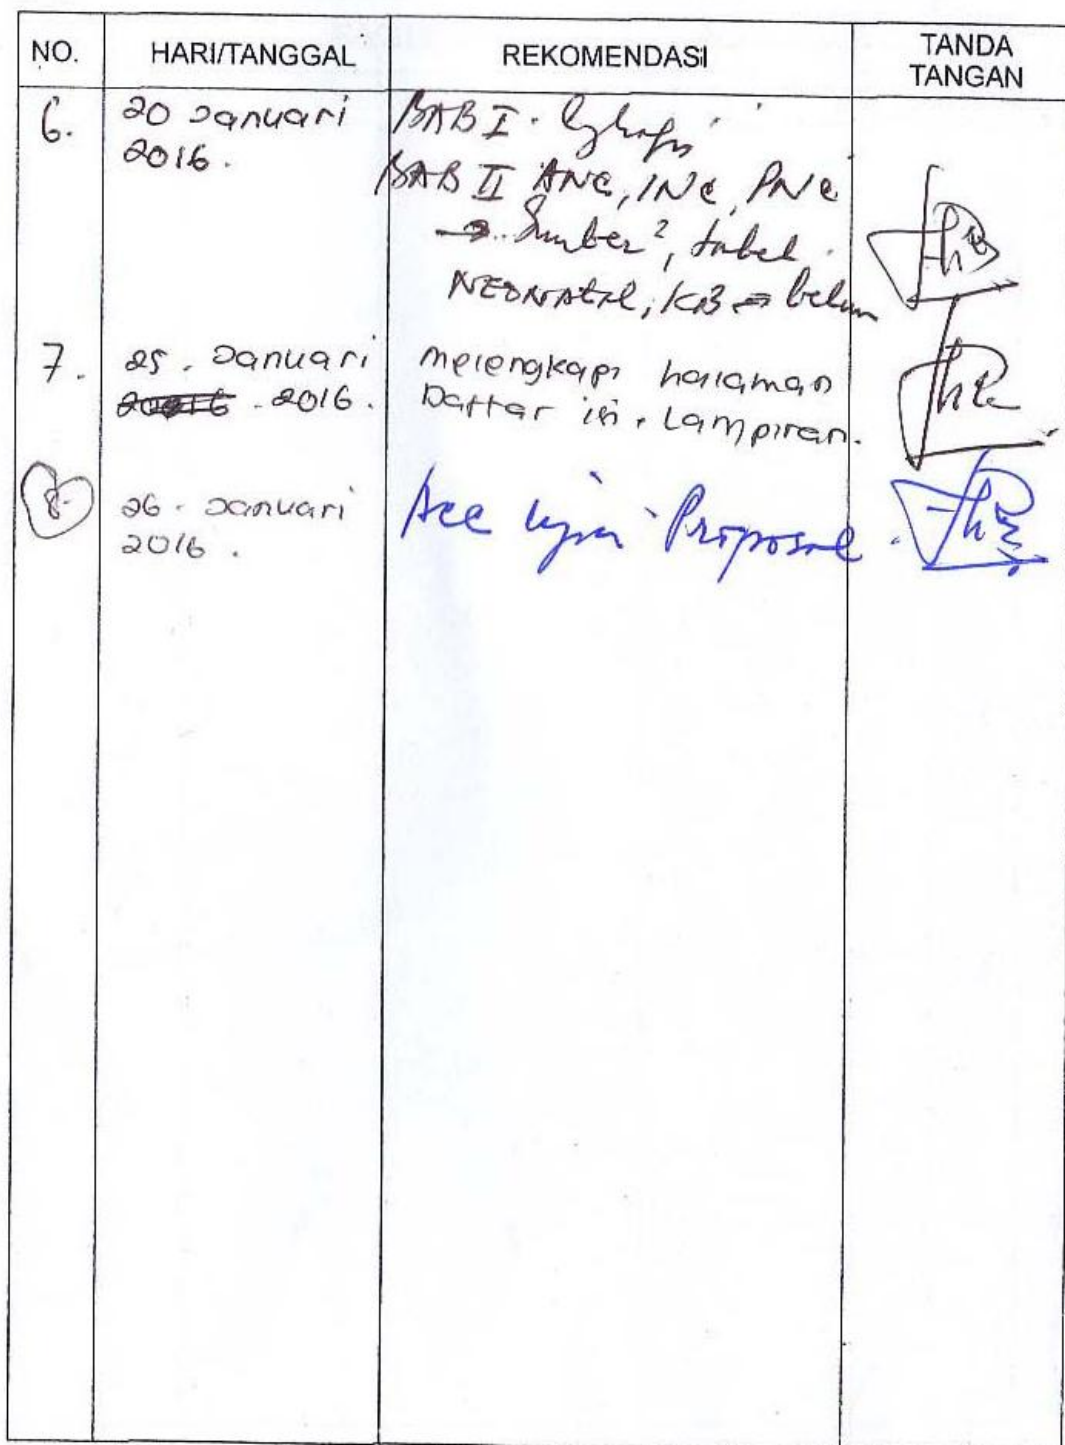 NO. HARI/TANGGAL REKOMENDASI TANDA TANGAN
6. 20 Januari 2016. BAB I. lengkapi
BAB II ANC, INC, PNC
→ Sumber², tabel.
NEONATAL, KB = belum
7. 25. Januari 2016. melengkapi halaman
Daftar isi. Lampiran.
8. 26. Januari 2016. Acc ujian Proposal.